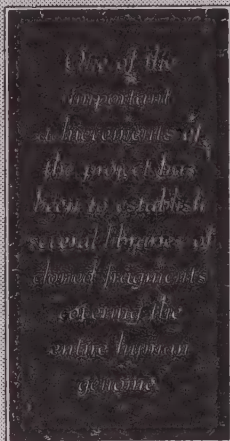 One of the
important
achievements of
the project has
been to establish
several libraries of
cloned fragments
covering the
entire human
genome.